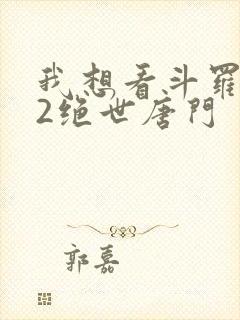 我想看斗羅
2绝世唐門
郭嘉